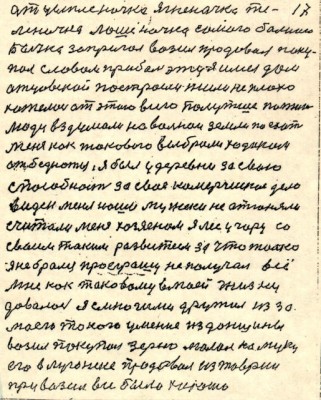 от цыпленочка ягненачка те- 17
леночка лошоночка самого большого
бычка запрягал возил продовал поку-
пал словом прибал этуя имел дом
отцовской построили жили не плохо
кажется от этого всего получше потом
люди вздумали на волнои земли поехат
меня как такового выбрали ходаком
от бедноты, я был у деревни за свою
способност за свое комерческое дело
виден меня наши мужеки не отганяли
считали меня хозяеном я могу гору со
своем таким развитем за что только
я не брался прострации не получал всё
мне как таковому в моей жизни
довалос я с многими дружил из за
моего такого умение из донщины
возил покупал зерно молол на муку
его в Луганске продовал из таврии
привозил все было хорошо